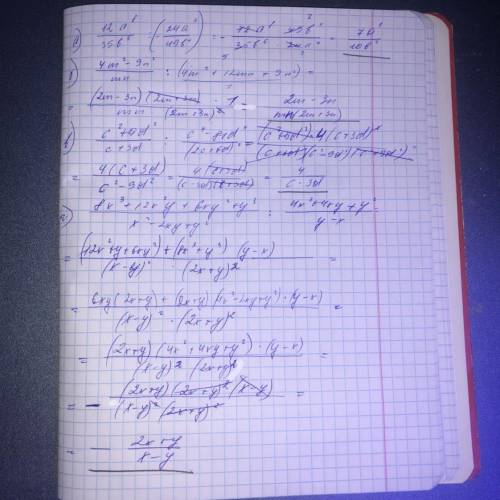 а) 12a⁸/35b⁶ : (24a/49b⁶) = 12a⁸ · 49b⁶/35b⁶ · 24a = 7a/10b⁶
б) 4m² - 9n²/mn : (4m² + 12mn + 9n²) =
= (2m - 3n)(2m + 3n) · 1/mn (2m + 3n)² = 2m - 3n/mn(2m + 3n)
4(c + 3d)/c² - 9d² = 4(c + 3d)/(c - 3d)(c + 3d) = 4/c - 3d
8x³ + 12x²y + 6xy² + y³/x² - 2xy + y² : 4x² + 4xy + y²/y - x
= (12x²y + 6xy²) + (8x³ + y³) (y - x)/(x - y)² · (2x + y)² =
= 6xy(2x + y) + (2x + y)(4x² - 2xy + y²) · (y - x)/(x - y)² · (2x + y)² =
= (2x + y)(4x² + 4xy + y²) · (y - x)/(x - y)² (2x + y)² =
= - (2x + y)(2x + y)² (x - y)/(x - y)² (2x + y)² =
= - 2x + y/x - y